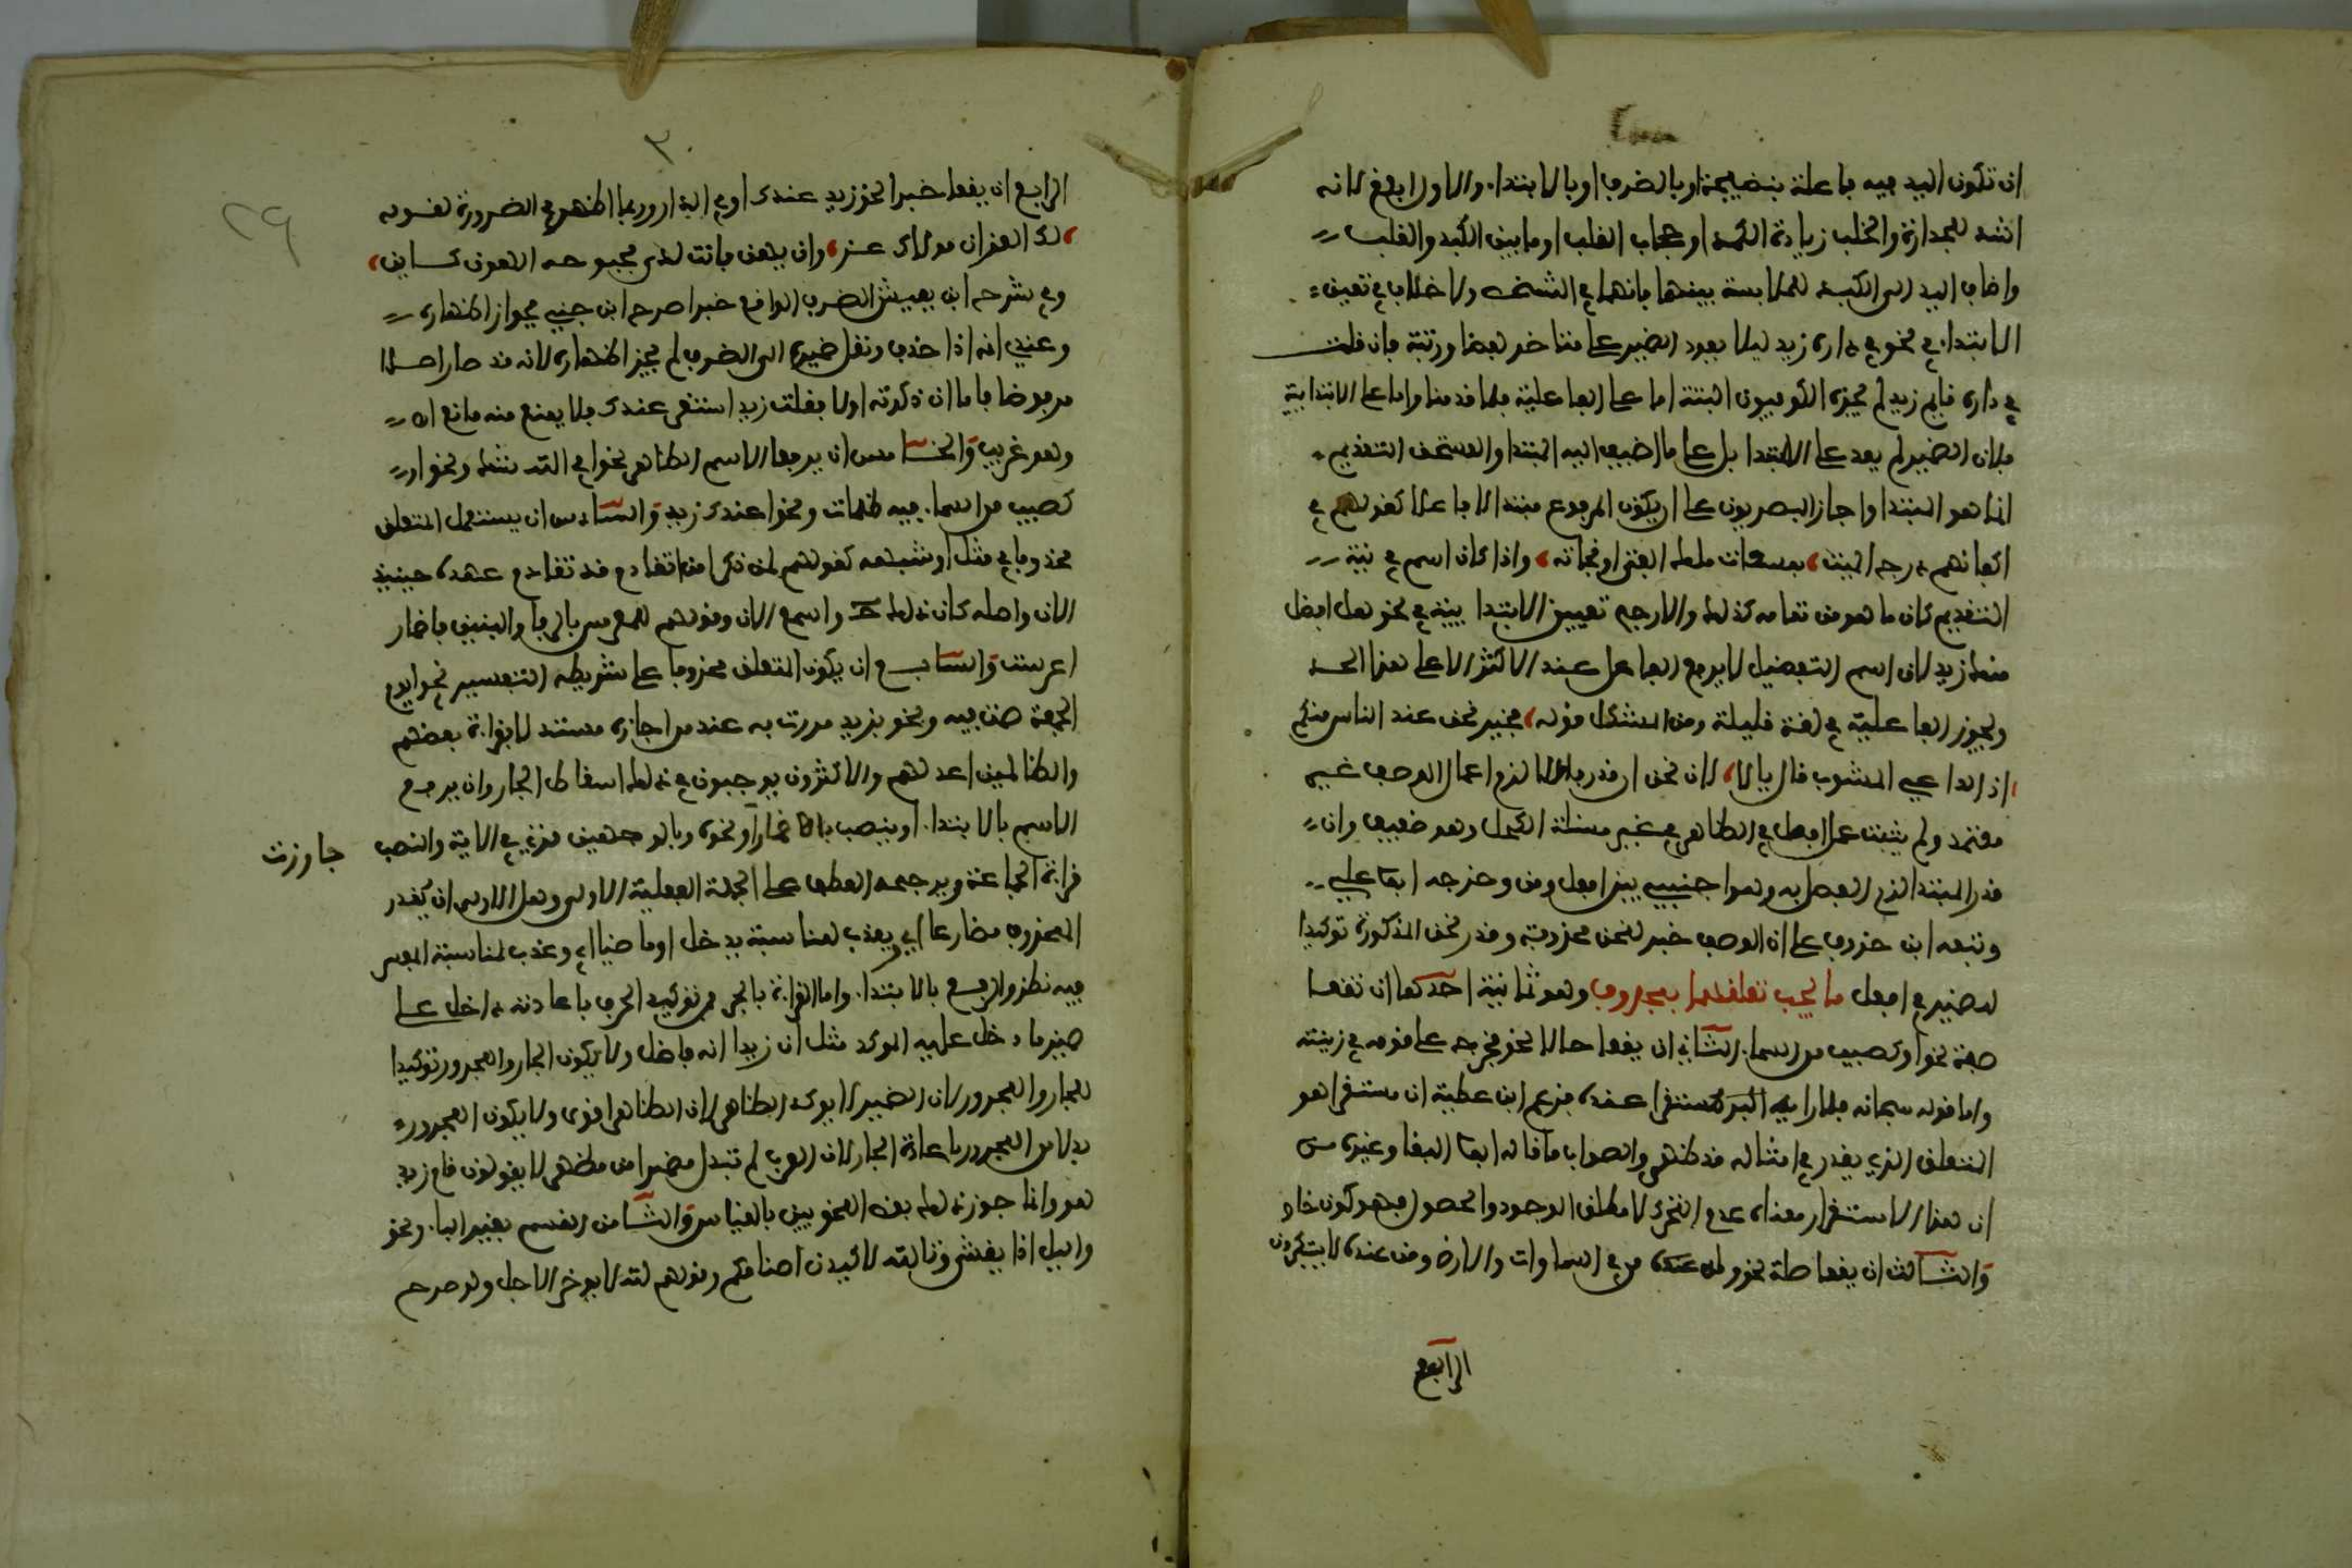 ان تكون اليد فيه فاعلة بنضيجة او بالظرف او بالابتداء والاول ابلغ لانه
اشد للحرارة والخلب زيادة الكبد او حجاب القلب او ما بين الكبد والقلب
واضاف اليد الى الكبد للملابسة بينهما فانهما في الشخص ولا خلاف في تعين
الابتداء في نحو في داره زيد ليلا يعود الضمير على متاخر لفظا ورتبة فان قلت
في داره قايم زيد لم يجزه الكوفيون البتة اما على الفاعلية فلما قدمنا واما على الابتدايية
فلان الضمير لم يعد على المبتدا بل على ما اضيف اليه المبتدا والمستحق التقديم
انما هو المبتدا واجازه البصريون على ان يكون المرفوع مبتدا لا فاعلا كقولهم في
اكفانهم درج الميت، بمسعات هلك الفتى او نجاته، واذا كان الاسم في نية
التقديم كان ما هو من تمامه كذلك والارجح تعيين الابتدايية في نحو هل افضل
منك زيد لان اسم التفضيل لا يرفع الفاعل عند الاكثر الا على هذا الحد
ويجوز الفاعلية في لغة قليلة ومن المشكل قوله، فخير نحن عند الناس منكم
اذ الداعي المثوب قال يالا، لان نحن ان قدر فاعلا لزم اعمال الوصف غير
معتمد ولم يثبت عمل افعل في الظاهر في غير مسئلة الكحل وهو ضعيف وان
قدر المبتدا لزم الفصل به وهو اجنبي بين افعل ومن وخرجه ابو علي
وتبعه ابن خروف على ان الوصف خبر لنحن محذوفة وقدر نحن المذكورة توكيدا
لضمير في افعل ما يجب تعلقهما بمحذوف وهو ثمانية احدها ان يقعا
صفة نحو او كصيب من السماء الثاني ان يقعا حالا نحو فخرج على قومه في زينته
واما قوله سبحانه فلما راه مستقرا عنده فزعم ابن عطية ان مستقرا هو
المتعلق الذي يقدر في امثاله قد ظهر والصواب ما قاله ابو البقا وغيره من
ان هذا الاستقرار معناه عدم التحرك لا مطلق الوجود والحصول فهو كون خاص
والثالث ان يقعا صلة نحو وله من في السماوات والارض ومن عنده لا يستكبرون
الرابع
٣٠
٢٩
الرابع ان يقعا خبرا نحو زيد عندك او في الدار وربما اظهر في الضرورة كقوله
، لك العز ان مولاك عز، وان يهن فانت لدى بحبوحة الهون كاين،
وفي شرح ابن يعيش الظرف الواقع خبرا صرح ابن جني بجواز اظهاره
وعندي انه اذا حذف ونقل ضميره الى الظرف لم يجز اظهاره لانه قد صار اصلا
مرفوضا فاما ان ذكرته اولا فقلت زيد استقر عندك فلا يمنع منه مانع اه
وهو غريب والخامس ان يرفعا الاسم الظاهر نحو افي الله شك ونحو او
كصيب من السماء فيه ظلمات ونحو اعندك زيد والسادس ان يستعمل المتعلق
محذوفا في مثل او شبهه كقولهم لمن ذكر امرا تقادم قد تقادم عهده حينيذ
الان واصله كان ذلك ح واسمع الان وقولهم للمعرس بالرفا والبنين باضمار
اعرست والسابع ان يكون المتعلق محذوفا على شريطة التفسير نحو ايوم
الجمعة صمت فيه ونحو بزيد مررت به عند من اجازه مستدلا بقراءة بعضهم
والظالمين اعد لهم والاكثرون يوجبون في ذلك اسقاط الجار وان يرفع
الاسم بالابتداء او ينصب باضمار ونحوه وبالوجهين قرئ في الاية والنصب
جاوزت
قراءة الجماعة ويرجحه العطف على الجملة الفعلية الاولى وهل الاولى ان يقدر
المحذوف مضارعا اي ويعذب لمناسبة يدخل او ماضيا اي وعذب لمناسبة المفسر
فيه نظر والرفع بالابتداء واما القراءة بالجر فمن توكيد الحرف باعادته داخلا على
ضمير ما دخل عليه الموكد مثل ان زيدا انه فاضل ولا يكون الجار والمجرور توكيدا
للجار والمجرور لان الضمير لا يوكد الظاهر لان الظاهر اقوى ولا يكون المجرور
بدلا من المجرور باعادة الجار لان العرب لم تبدل مضمرا من مظهر لا يقولون قام زيد
هو وانما جوز ذلك بعض النحويين بالقياس والثامن القسم بغير الباء ونحو
والليل اذا يغشى وتالله لاكيدن اصنامكم وقولهم لله لا يوخر الاجل ولو صرح